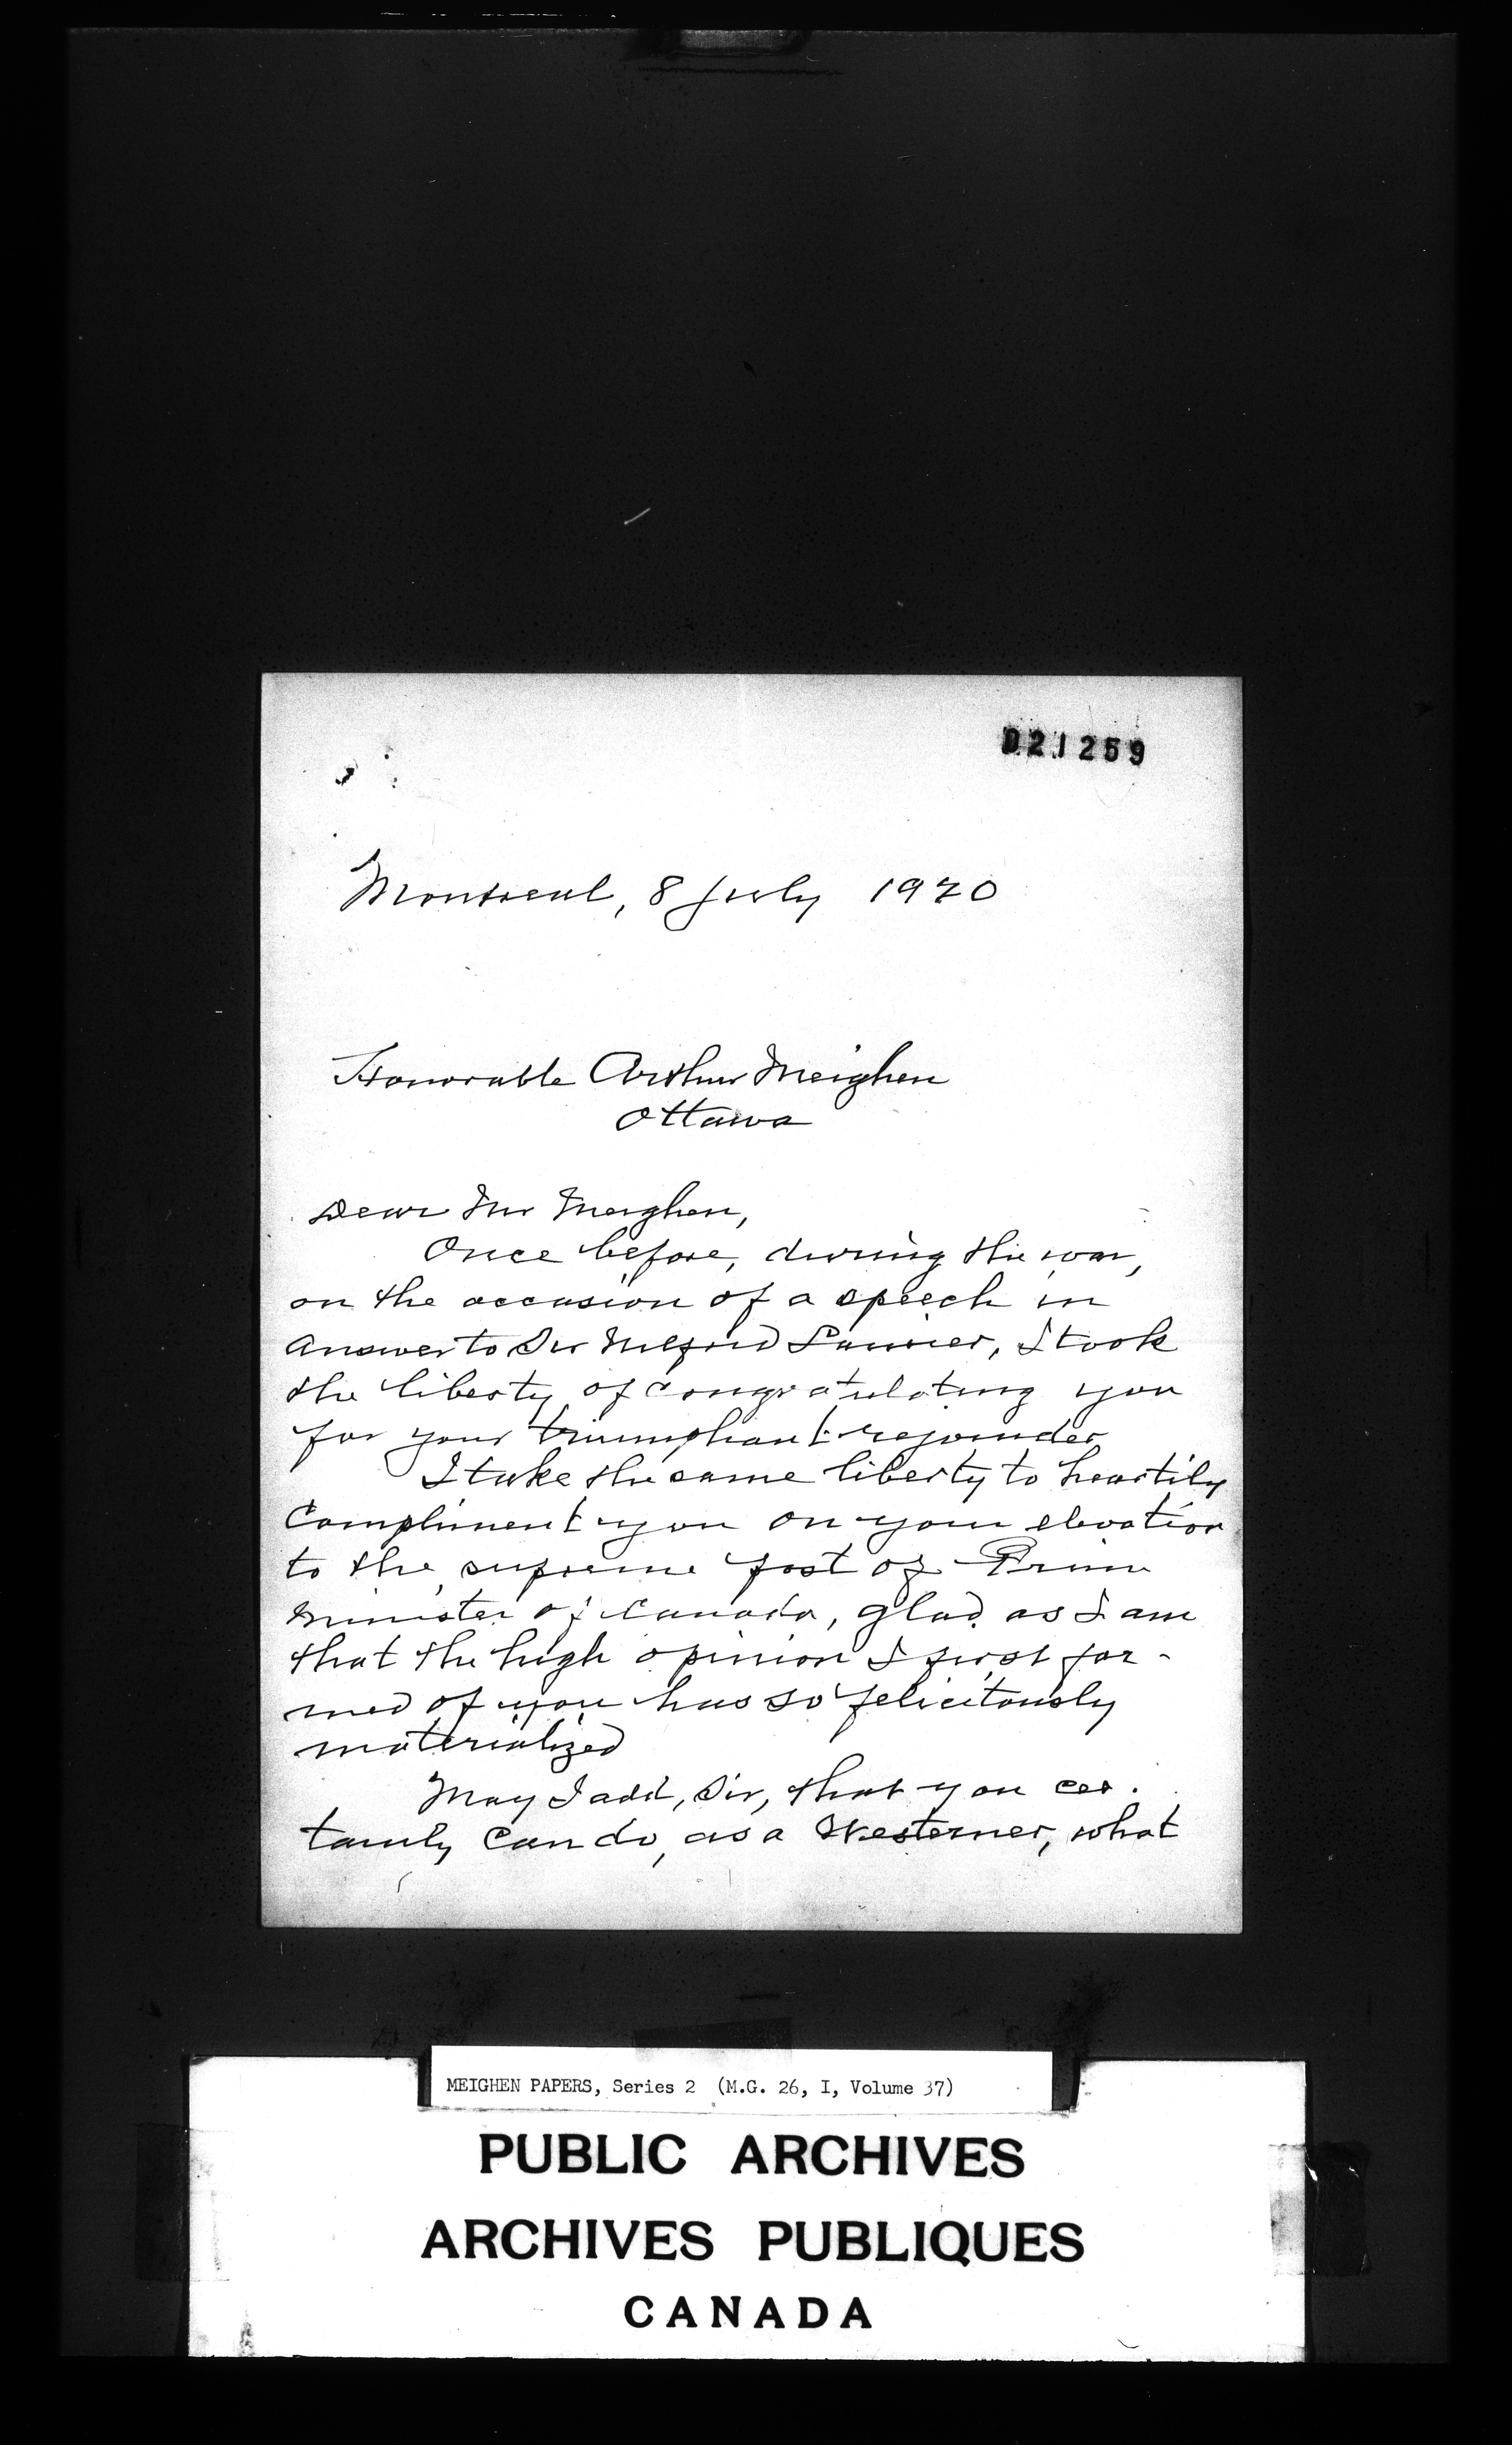 021259
Montreal, 8 July 1920
Honorable Arthur Meighen
Ottawa
Dear Mr Meighen,
Once before, during the war,
on the occasion of a speech in
answer to Sir Wilfrid Laurier, I took
the liberty of congratulating you
for your triumphant rejoinder
I take the same liberty to heartily
compliment you on your elevation
to the supreme post of Prime
Minister of Canada, glad as I am
that the high opinion I first for-
med of you has so felicitously
materialized
May I add, Sir, that you cer-
tainly can do, as a Westerner, what
MEIGHEN PAPERS, Series 2 (M.G. 26, I, Volume 37)
PUBLIC ARCHIVES
ARCHIVES PUBLIQUES
CANADA